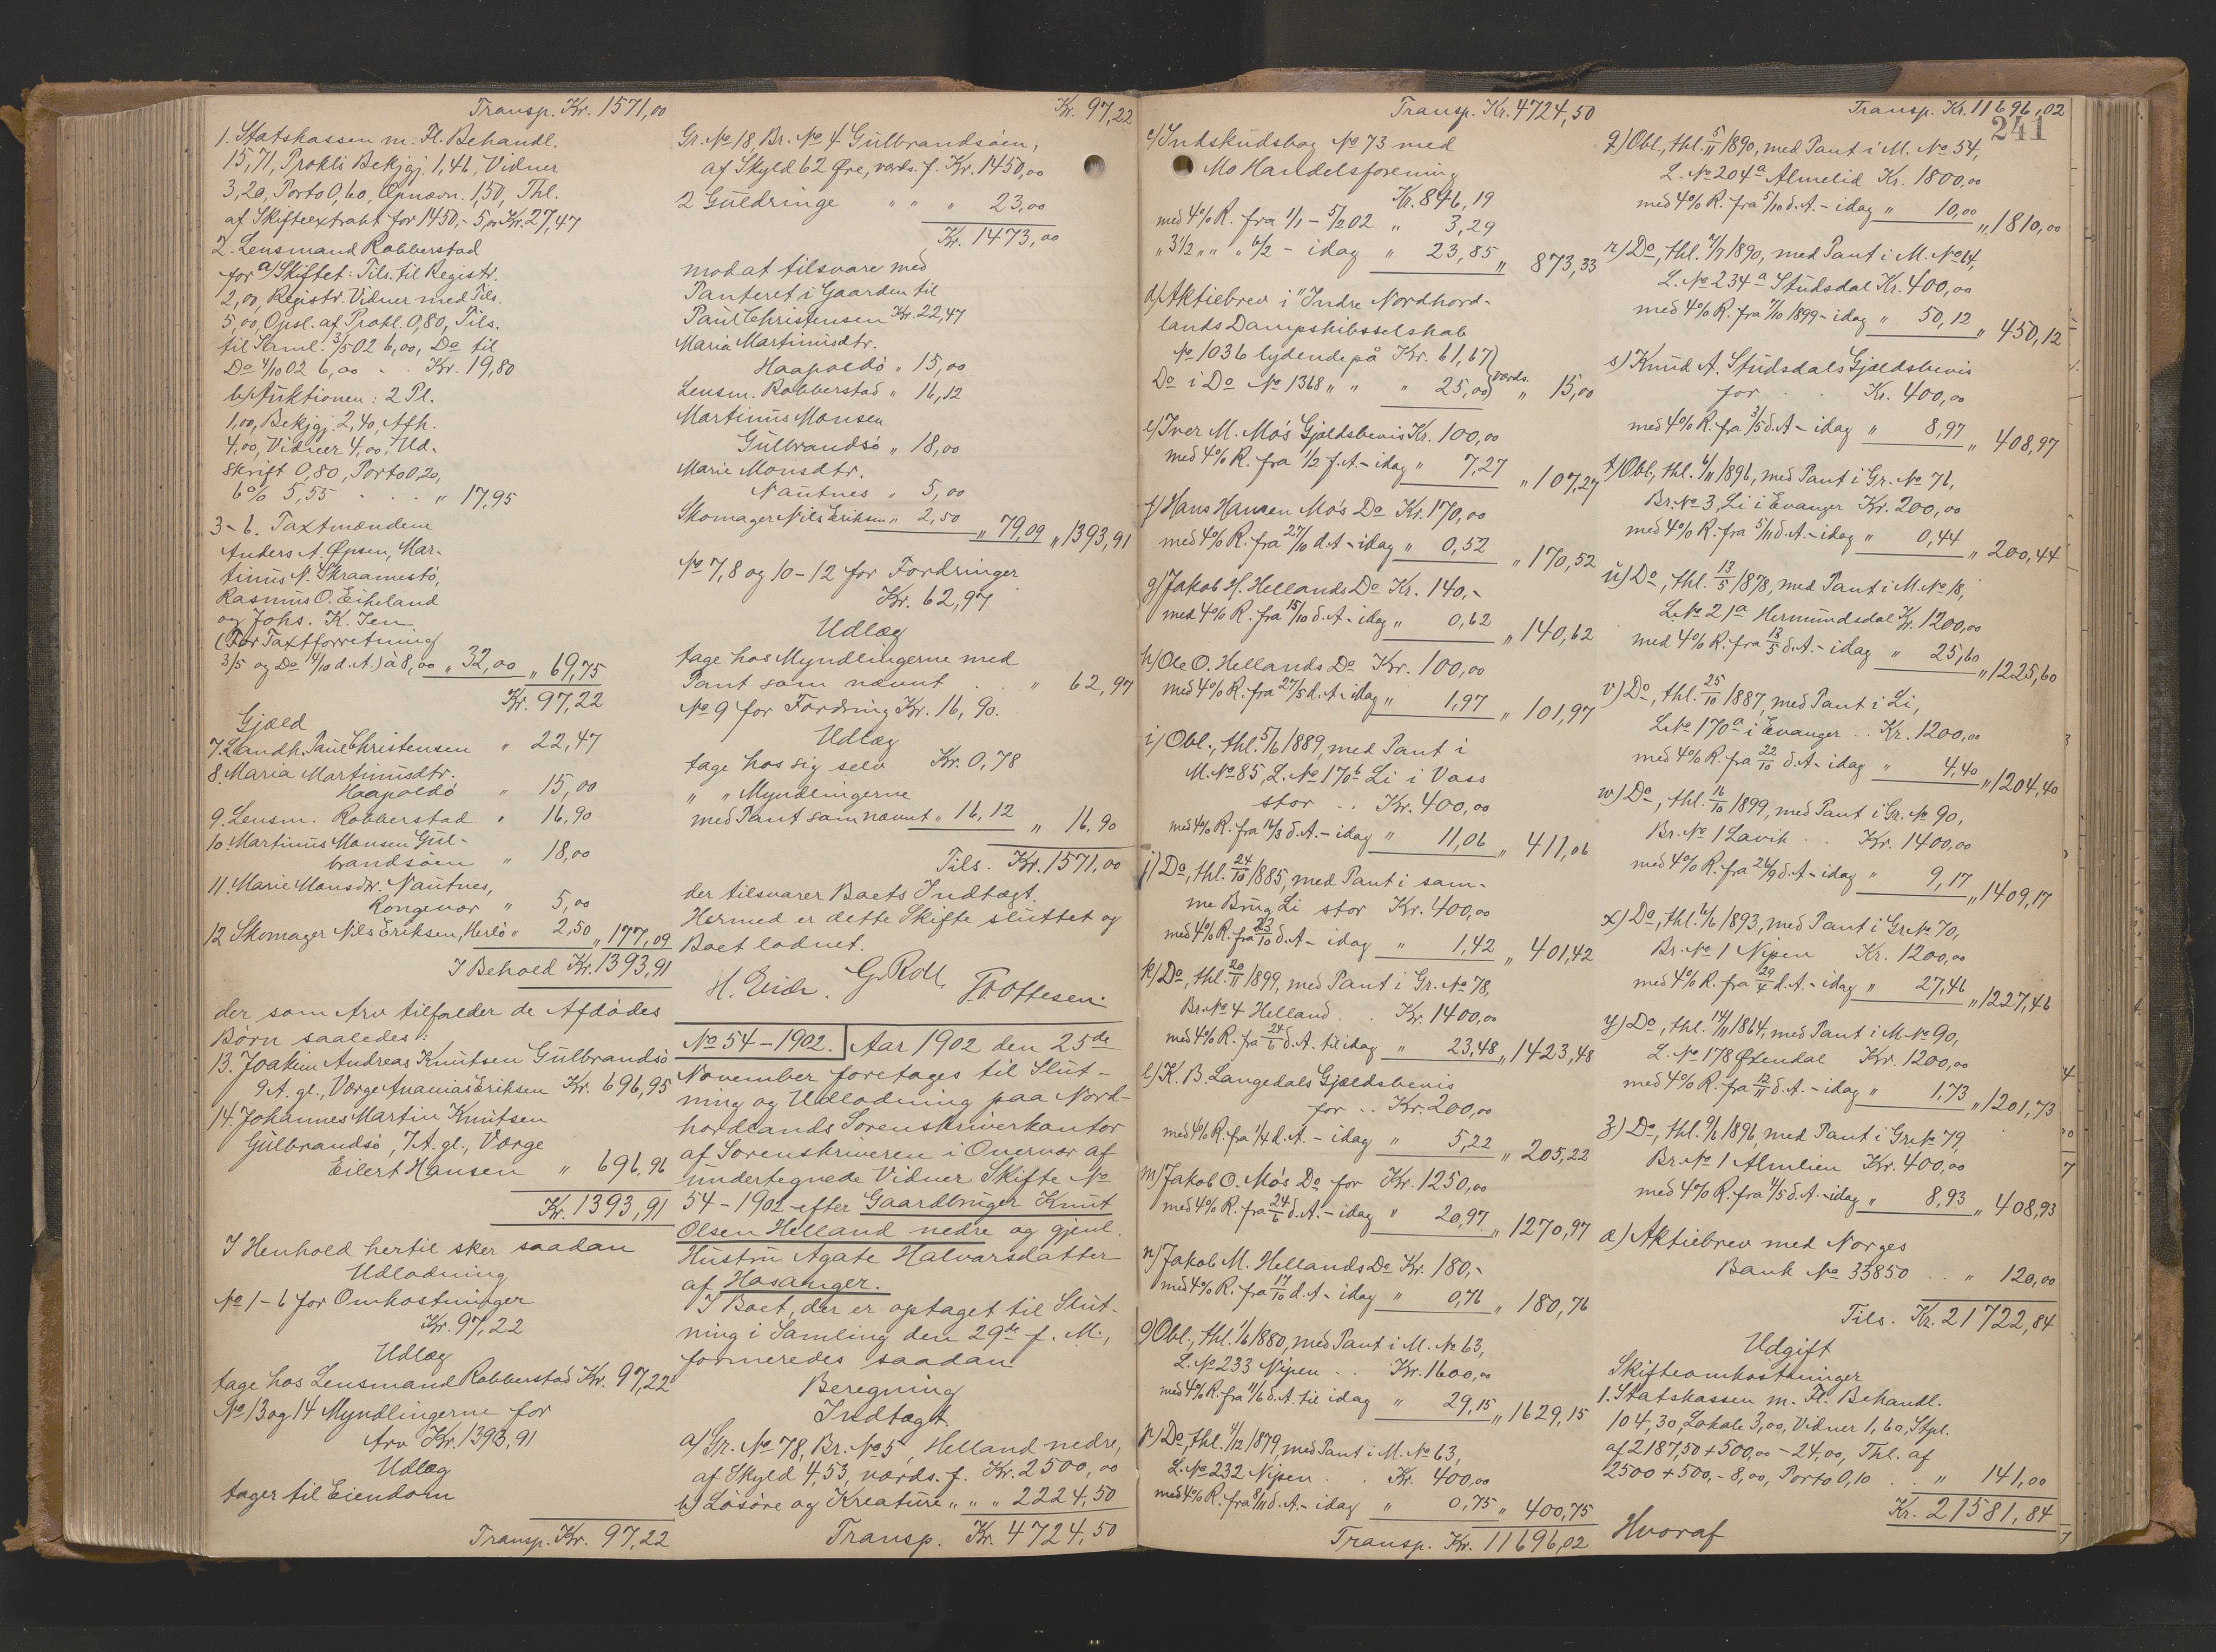 Transp. Kr. 1571,00
1. Statskassen m. Fl. Behandl.
15,71, Prokls Bekjgj. 1,46, Vidner
3,20, Porto 0,60, Opnævn. 1,50, Thl.
af Skifteextrakt for 1450,- 5,00 Kr. 27,47
2. Lensmand Robberstad
for a) Skiftet: Tils. til Registr.
2,00, Registr. Vidner med Tils.
5,00, Opsl. af Prokl. 0,80, Tils.
til Saml. 3/5 02 6,00, Do til
Do 4/10 02 6,00 . . Kr. 19,80
b) Auktionen: 2 Pl.
1,00, Bekjgj. 2,40, Afh.
4,00, Vidner 4,00, Ud-
skrift 0,80, Porto 0,20,
6% 5,55 . . . " 17,95
3-6. Taxtmændene
Anders A. Øpsen, Mar-
tinus N. Skraamestø,
Rasmus O. Eikeland
og Johs. K. Ien
(For Taxtforretning
3/5 og Do 4/10 d. A.) à 8,00 " 32,00 " 69,75
Kr. 97,22
Gjæld
7. Landh. Paul Christensen " 22,47
8. Maria Martinusdtr.
Haapoldø " 15,00
9. Lensm. Robberstad " 16,90
10. Martinus Monsen Gul-
brandsøen " 18,00
11. Marie Monsdtr. Nautnes,
Rongevær " 5,00
12 Skomager Nils Eriksen, Herlø " 2,50 " 177,09
I Behold Kr. 1393,91
der som Arv tilfalder de Afdødes
Børn saaledes:
13. Joakim Andreas Knutsen Gulbrandsø
9 A. gl., Værge Ananias Eriksen Kr. 696,95
14. Johannes Martin Knutsen
Gulbrandsø, 7 A. gl., Værge
Eilert Hansen " 696,96
Kr. 1393,91
I Henhold hertil sker saadan
Udlodning
No 1-6 for Omkostninger
Kr. 97,22
Udlæg
tage hos Lensmand Robberstad Kr. 97,22
No 13 og 14 Myndlingerne for
Arv Kr. 1393,91
Udlæg
tager til Eiendom
Transp. Kr. 97,22
Kr. 97,22
Gr. No 18, Br. No 4 Gulbrandsøen,
af Skyld 62 Øre, værds. f. Kr. 1450,00
2 Guldringe " " " 23,00
Kr. 1473,00
modat tilsvare med
Panteret i Gaarden til
Paul Christensen Kr. 22,47
Maria Martinusdtr.
Haapoldø " 15,00
Lensm. Robberstad " 16,12
Martinus Monsen
Gulbrandsø " 18,00
Marie Monsdtr.
Nautnes " 5,00
Skomager Nils Eriksen " 2,50
" 79,09 " 1393,91
No 7, 8 og 10-12 for Fordringer
Kr. 62,97
Udlæg
tage hos Myndlingerne med
Pant som nævnt . . " 62,97
No 9 for Fordring Kr. 16,90.
Udlæg
tage hos sig selv Kr. 0,78
" " Myndlingerne
med Pant som nævnt " 16,12 " 16,90
Tils. Kr. 1571,00
der tilsvarer Boets Indtægt.
Hermed er dette Skifte sluttet og
Boet lodnet.
H. Eide. G. Roll F. Ottesen.
No 54-1902. Aar 1902 den 25de
November foretages til Slut-
ning og Udlodning paa Nord-
hordlands Sorenskriverkontor
af Sorenskriveren i Overvær af
undertegnede Vidner Skifte No
54-1902 efter Gaardbruger Knut
Olsen Helland nedre og gjenl.
Hustru Agate Halvorsdatter
af Hosanger.
I Boet, der er optaget til Slut-
ning i Samling den 29de f. M.,
formeredes saadan
Beregning
Indtægt.
a) Gr. No 78, Br. No 5, Helland nedre,
af Skyld 4,53, værds. f. Kr. 2500,00
b) Løsøre og Kreature " " " 2224,50
Transp. Kr. 4724,50
Transp. Kr. 4724,50
c) Indskudsbog No 73 med
Mo Handelsforening
Kr. 846,19
med 4% R. fra 1/1 - 5/2 02 " 3,29
" 3 1/2 " " " 6/2 - idag " 23,85 " 873,33
d) Aktiebrev i "Indre Nordhord-
lands Dampskibsselskab
No 1036 lydende på Kr. 61,67
Do i Do No 1368 " " " 25,00 } værds. " 15,00
e) Iver M. Mo's Gjældsbevis Kr. 100,00
med 4% R. fra 1/2 f. A. - idag " 7,27 " 107,27
f) Hans Hansen Mo's Do Kr. 170,00
med 4% R. fra 27/10 d. A. - idag " 0,52 " 170,52
g) Jakob H. Hellands Do Kr. 140,-
med 4% R. fra 15/10 d. A. - idag " 0,62 " 140,62
h) Ole O. Hellands Do Kr. 100,00
med 4% R. fra 27/5 d. A. - idag " 1,97 " 101,97
i) Obl., thl. 5/6 1889, med Pant i
M. No 85, L. No 170b Li i Voss
stor . . Kr. 400,00
med 4% R. fra 16/3 d. A. - idag " 11,06 " 411,06
j) Do, thl. 24/10 1885, med Pant i sam-
me Brug Li stor Kr. 400,00
med 4% R. fra 23/10 d. A. - idag " 1,42 " 401,42
k) Do, thl. 20/11 1899, med Pant i Gr. No 78,
Br. No 4 Helland . . Kr. 1400,00
med 4% R. fra 24/6 d. A. til idag " 23,48 " 1423,48
l) K. B. Langedals Gjældsbevis
for . . Kr. 200,00
med 4% R. fra 1/4 d. A. - idag " 5,22 " 205,22
m) Jakob O. Mo's Do for Kr. 1250,00
med 4% R. fra 24/6 d. A. - idag " 20,97 " 1270,97
n) Jakob M. Hellands Do Kr. 180,-
med 4% R. fra 17/10 d. A. - idag " 0,76 " 180,76
o) Obl., thl. 1/6 1880, med Pant i M. No 63,
L. No 233 Nipen . . Kr. 1600,00
med 4% R. fra 11/6 d. A. til idag " 29,15 " 1629,15
p) Do, thl. 4/12 1879, med Pant i M. No 63,
L. No 232 Nipen . . Kr. 400,00
med 4% R. fra 8/11 d. A. - idag " 0,75 " 400,75
Transp. Kr. 11696,02
Transp. Kr. 11696,02
241
q) Obl., thl. 5/11 1890, med Pant i M. No 54,
L. No 204a Almelid Kr. 1800,00
med 4% R. fra 5/10 d. A. - idag " 10,00 " 1810,00
r) Do, thl. 7/7 1890, med Pant i M. No 64,
L. No 234a Studsdal Kr. 400,00
med 4% R. fra 7/10 1899 - idag " 50,12 " 450,12
s) Knud A. Studsdals Gjældsbevis
for . . Kr. 400,00
med 4% R. fra 3/5 d. A. - idag " 8,97 " 408,97
t) Obl., thl. 6/11 1896, med Pant i Gr. No 76,
Br. No 3, Li i Evanger Kr. 200,00
med 4% R. fra 5/11 d. A. - idag " 0,44 " 200,44
u) Do, thl. 13/5 1878, med Pant i M. No 18,
L. No 21a Hermundsdal Kr. 1200,00
med 4% R. fra 18/5 d. A. - idag " 25,60 " 1225,60
v) Do, thl. 25/10 1887, med Pant i Li,
L. No 170a i Evanger . . Kr. 1200,00
med 4% R. fra 22/10 d. A. - idag " 4,40 " 1204,40
w) Do, thl. 16/10 1899, med Pant i Gr. No 90,
Br. No 1 Lavik . . Kr. 1400,00
med 4% R. fra 26/9 d. A. - idag " 9,17 " 1409,17
x) Do, thl. 6/6 1893, med Pant i Gr. No 70,
Br. No 1 Nipen Kr. 1200,00
med 4% R. fra 29/4 d. A. - idag " 27,46 " 1227,46
y) Do, thl. 14/11 1864, med Pant i M. No 90,
L. No 178 Øxendal Kr. 1200,00
med 4% R. fra 12/11 d. A. - idag " 1,73 " 1201,73
z) Do, thl. 9/6 1896, med Pant i Gr. No 79,
Br. No 1 Almlien Kr. 400,00
med 4% R. fra 4/5 d. A. - idag " 8,93 " 408,93
æ) Aktiebrev med Norges
Bank No 33850 . . " 120,00
Tils. Kr. 21722,84
Udgift
Skifteomkostninger
1. Statskassen m. Fl. Behandl.
104,30, Lokale 3,00, Vidner 1,60, Stpl.
af 2187,50 + 500,00 - 24,00, Thl. af
2500 + 500,- 8,00, Porto 0,10 . . " 141,00
Kr. 21581,84
Hvoraf